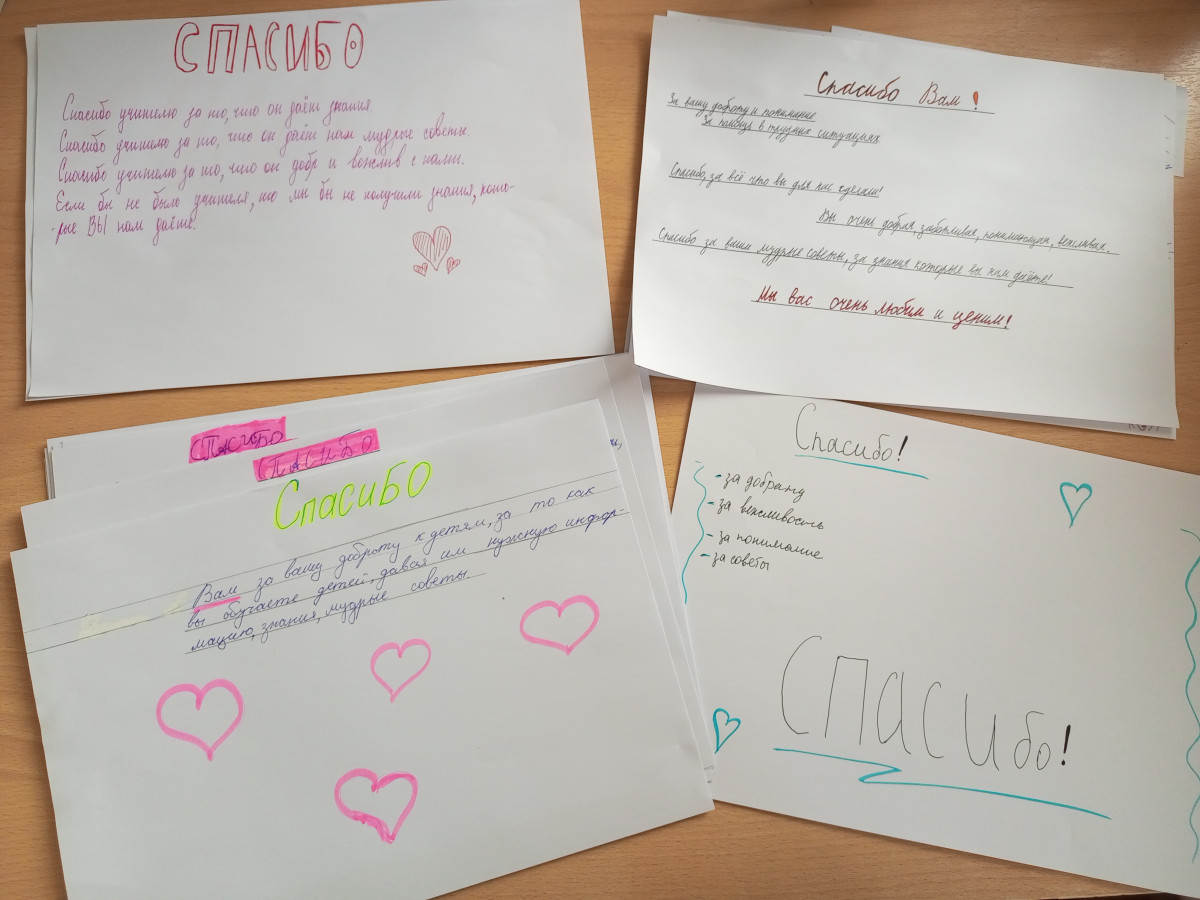 СПАСИБО
Спасибо учителю за то, что он даёт знания.
Спасибо учителю за то, что он даёт нам мудрые советы.
Спасибо учителю за то, что он добр и вежлив с нами.
Если бы не было учителя, то мы бы не получили знания, кото-
-рые ВЫ нам даёте.
Спасибо Вам!
За вашу доброту и понимание
За помощь в трудных ситуациях
Спасибо, за всё что вы для нас сделали!
Вы очень добрая, заботливая, понимающая, вежливая.
Спасибо за ваши мудрые советы, за знания которые вы нам даёте!
Мы вас очень любим и ценим!
СПАСИБО
СПАСИБО
Спасибо
Вам за вашу доброту к детям, за то как
вы обучаете детей, давая им нужную инфор-
мацию, знания, мудрые советы.
Спасибо!
- за доброту
- за вежливость
- за понимание
- за советы
Спасибо!